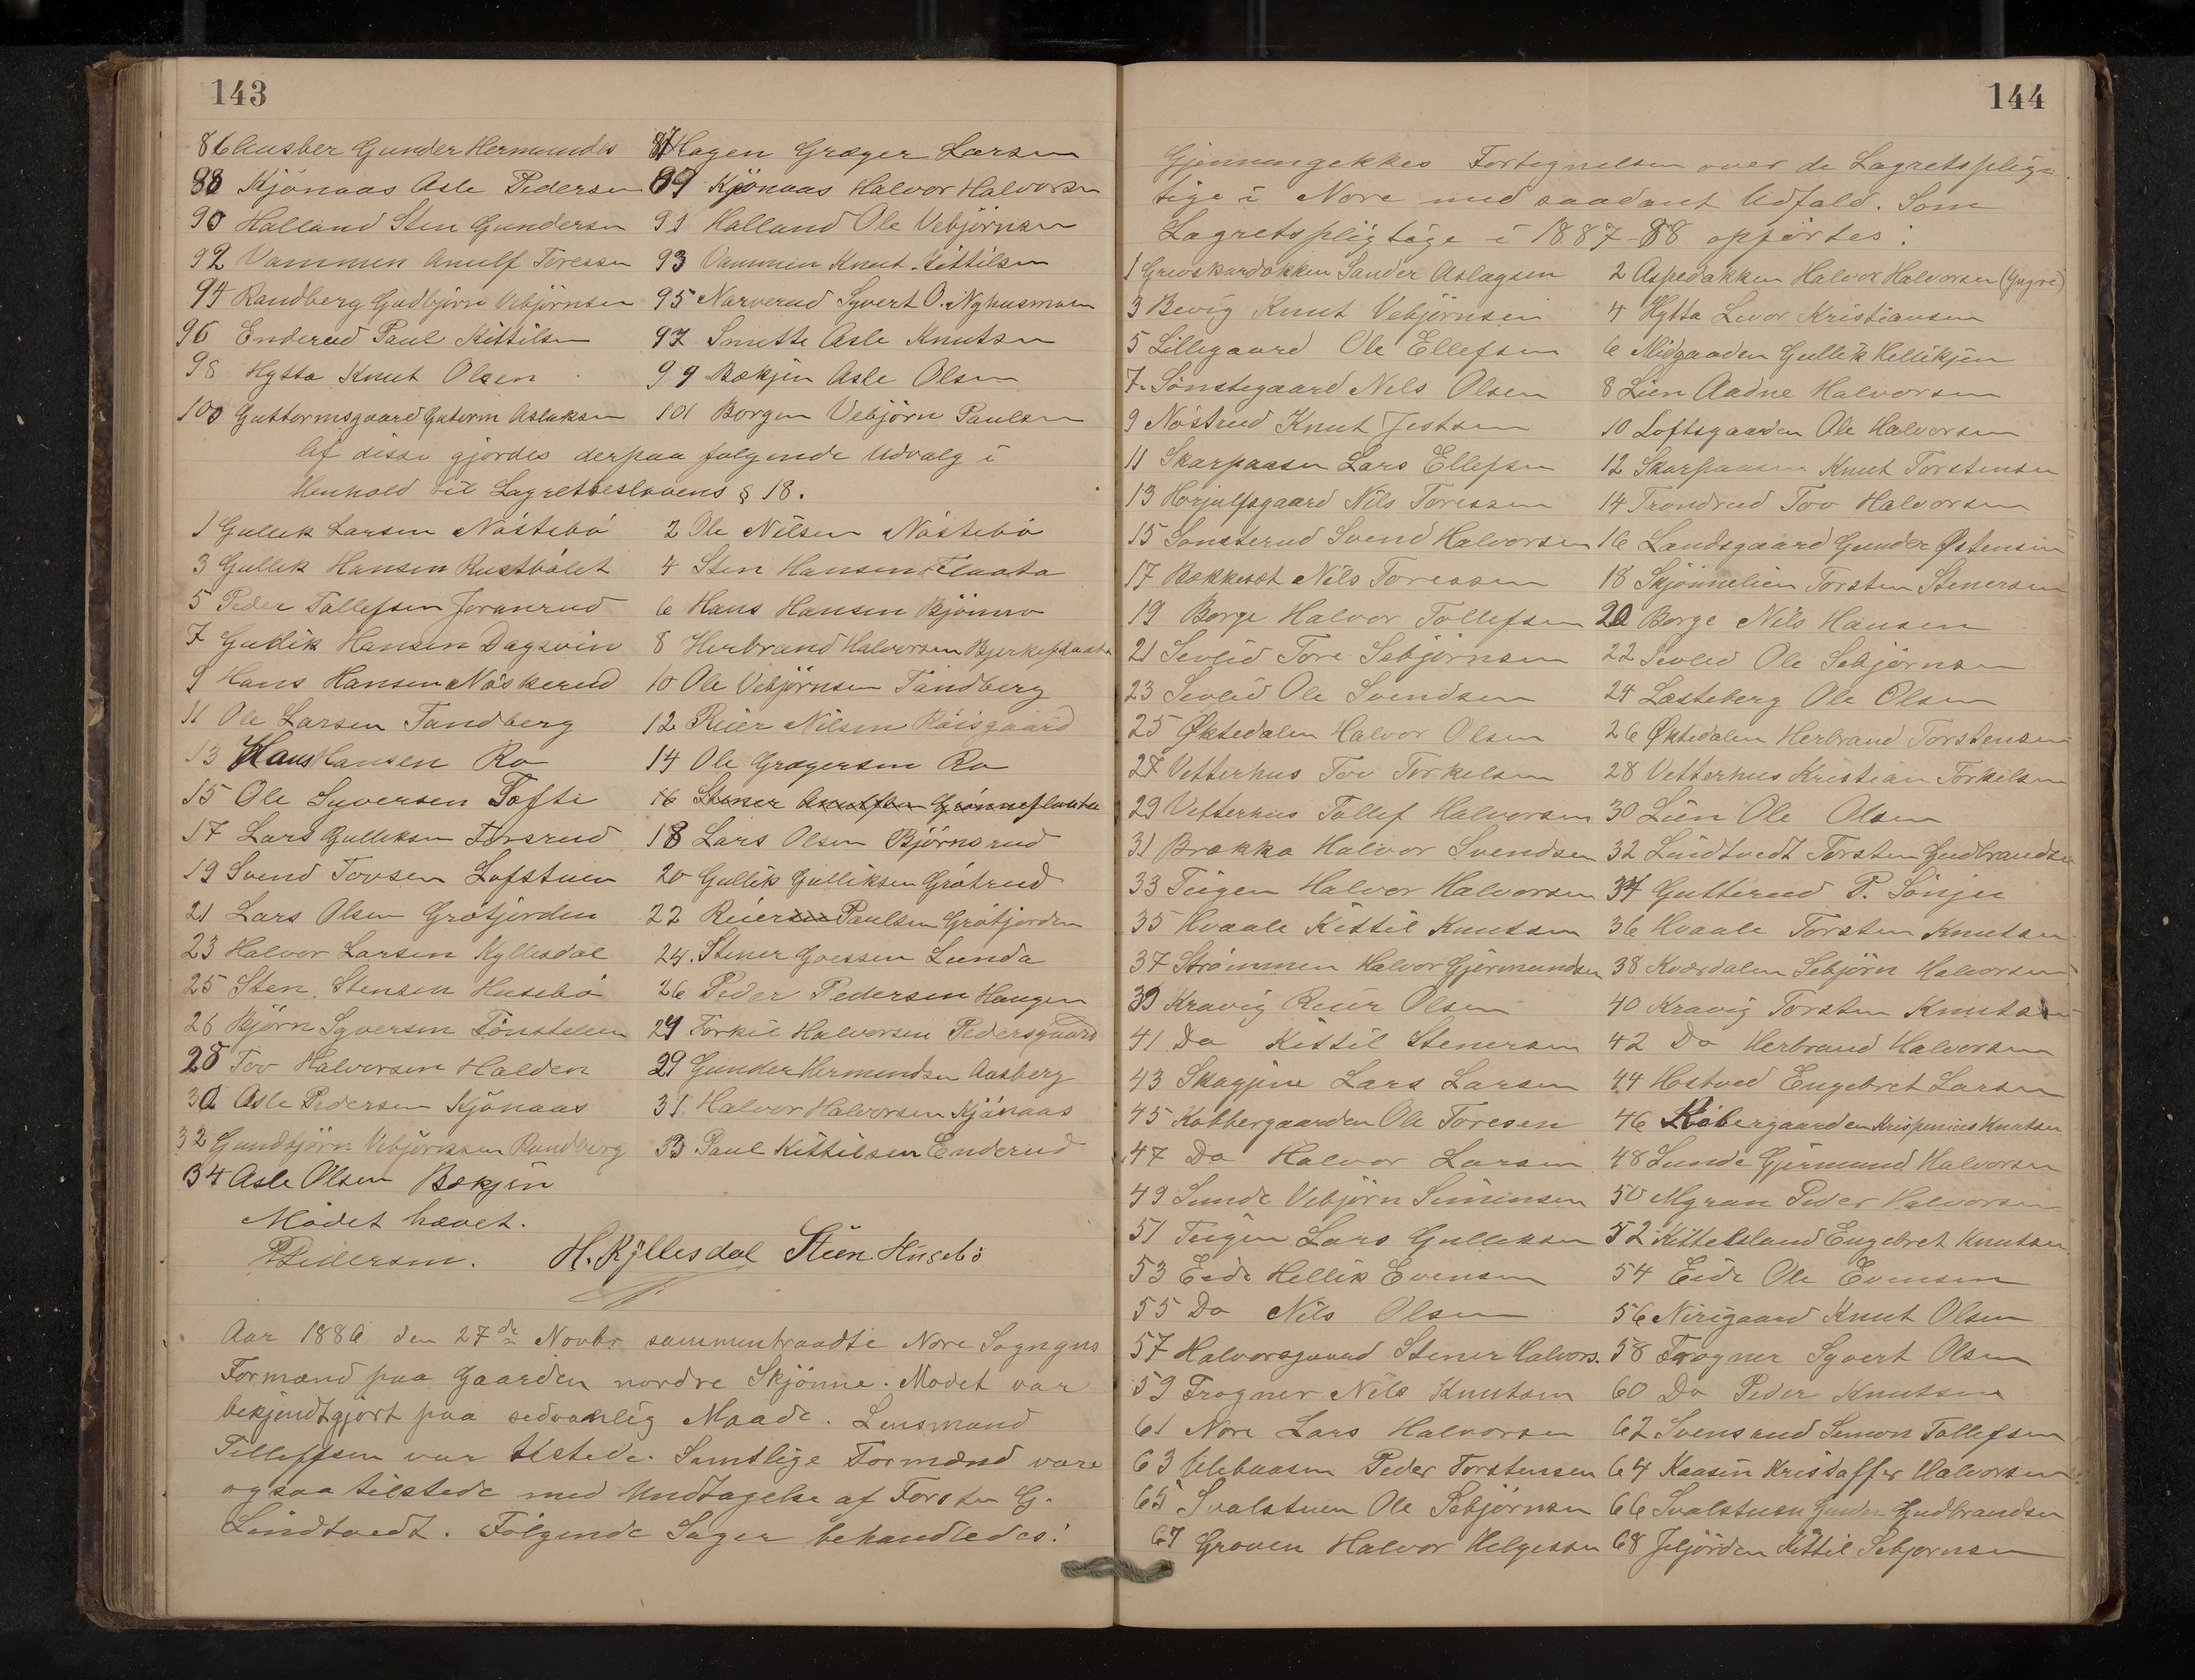 143
86 Aasber Gunder Hermundes 87 Hagen Græger Larsen
88 Kjönaas Asle Pedersen 89 Kjönaas Halvor Halvorsen
90 Halland Sten Gundersen 91 Halland Ole Vebjörnsen
92 Vammen Anulf Toressen 93 Vammen Knut Kittilsen
94 Randberg Gudbjörn Vebjörnsen 95 Narverud Syvert O. Nyhusmoen
96 Enderud Paul Kittilsen 97 Smette Asle Knutsen
98 Hytta Knut Olsen 99 Bækjin Asle Olsen
100 Guttormsgaard Gutorm Aslaksen 101 Borgen Vebjörn Paulsen
Af disse gjordes derpaa følgende Udvalg i
Henhold til Lagrettes lovens § 18.
1 Gullik Larsen Nöstebö 2 Ole Nilsen Nöstebö
3 Gullik Hansen Rustbölet 4 Sten Hansen Flaata
5 Peder Tollefsen Joranrud 6 Hans Hansen Bjömo
7 Gullik Hansen Dagsvin 8 Herbrand Halvorsen Bjerkeflaata
9 Hans Hansen Näskerud 10 Ole Vebjörnsen Tandberg
11 Ole Larsen Tandberg 12 Reier Nilsen Röisgaard
13 Hans Hansen Ro 14 Ole Grægersen Ro
15 Ole Syversen Tofte 16 Stener Anulfsen Grönneflaata
17 Lars Gulliksen Torsrud 18 Lars Olsen Björnsrud
19 Svend Tovsen Lofstuen 20 Gullik Gulliksen Grötrud
21 Lars Olsen Grötjorden 22 Reier Paulsen Grötjorden
23 Halvor Larsen Kyllesdal 24. Stener Goessen Lunda
25 Sten Stensen Husebö 26 Peder Pedersen Haugen
26 Björn Syversen Tönstelien 27 Torkil Halvorsen Pedersgaard
28 Tov Halvorsen Halden 29 Gunder Hermundsen Aasberg
30 Asle Pedersen Kjönaas 31. Halvor Halvorsen Kjönaas
32 Gundbjörn Vebjörnssen Randberg 33 Paul Kittilsen Enderud
34 Asle Olsen Bækjin
Mödet hævet.
Pedersen. H. Kyllesdal Steen Husebö
Aar 1886 den 27de Novbr sammentraadte Nore Sogngns
Formænd paa Gaarden nordre Skjönne. Mödet var
bekjendtgjort paa sedvanlig Maade. Lensmand
Tilleffsen var tilstede. Samtlige Formænd vare
ogsaa tilstede med Undtagelse af Torsten G.
Lindtvedt. Fölgende Sager behandledes:
144
Gjennemgikkes Fortegnelsen over de Lagretsplig-
tige i Nore med saadant Udfald. Som
Lagretspligtige i 1887-88 opförtes:
1 Grevskardokken Sander Aslagsen 2 Aspedokken Halvor Halvorsen (Yngre)
3 Bevig Knut Vebjörnsen 4 Hytta Levor Kristiansen
5 Lillegaard Ole Ellefsen 6 Midgaaden Gullik Hellikjen
7. Sönstegaard Nils Olsen 8 Lien Aadne Halvorsen
9 Nöstrud Knut Jestsen 10 Loftsgaarden Ole Halvorsen
11 Skarpaasen Lars Ellefsen 12 Skarpaasen Knut Torstensen
13 Horjulfsgaard Nils Toressen 14 Trondrud Tov Halvorsen
15 Sonsterud Svend Halvorsen 16 Landsgaard Gunder Østensen
17 Bækkesæt Nils Toressen 18 Skjönnelien Torsten Stenersen
19 Borge Halvor Tollefsen 20 Borge Nils Hansen
21 Sevlid Tore Sebjörnsen 22 Sevled Ole Sebjörnsen
23 Sevlid Ole Svendsen 24 Læsteberg Ole Olsen
25 Øktedalen Halvor Olsen 26 Øktedalen Herbrand Torstensen
27 Vetterhus Tov Torkelsen 28 Vetterhus Kristian Torkelsen
29 Vetterhus Tollef Halvorsen 30 Lien Ole Olsen
31 Brække Halvor Svendsen 32 Lindtvedt Torsten Gudbrandsen
33 Teigen Halvor Halvorsen 34 Gutterud P. Sönju
35 Hvaale Kittil Knutsen 36 Hvaale Torsten Knutsen
37 Strömmen Halvor Gjermundsen 38 Kværdalen Sebjörn Halvorsen
39 Kravig Reier Olsen 40 Kravig Torsten Knutsen
41 Do Kittil Stenersen 42 Do Herbrand Halvorsen
43 Skagjine Lars Larsen 44 Hostved Engebret Larsen
45 Kobbergaarden Ole Toresen 46 Kobergaarden Krispinius Knutsen
47 Do Halvor Larsen 48 Sunde Gjermund Halvorsen
49 Sunde Vebjörn Simensen 50 Mgran Peder Halvorsen
51 Teigen Lars Gulliksen 52 Kittelsland Engebret Knutsen
53 Eide Hellik Evensen 54 Eide Ole Evensen
55 Do Nils Olsen 56 Nirigaard Knut Olsen
57 Halvorsgaard Stener Halvors. 58 Trogner Syvert Olsen
59 Trogner Nils Knutsen 60 Do Peder Knutsen
61 Nore Lars Halvorsen 62 Svensrud Simon Tollefsen
63 Ulebaasen Peder Torstensen 64 Kaasin Kristoffer Halvorsen
65 Svalstuen Ole Sebjörnsen 66 Svalstuen Gunder Gudbrandsen
67 Groven Halvor Helgessen 68 Jeljörden Kittil Sebjornsen